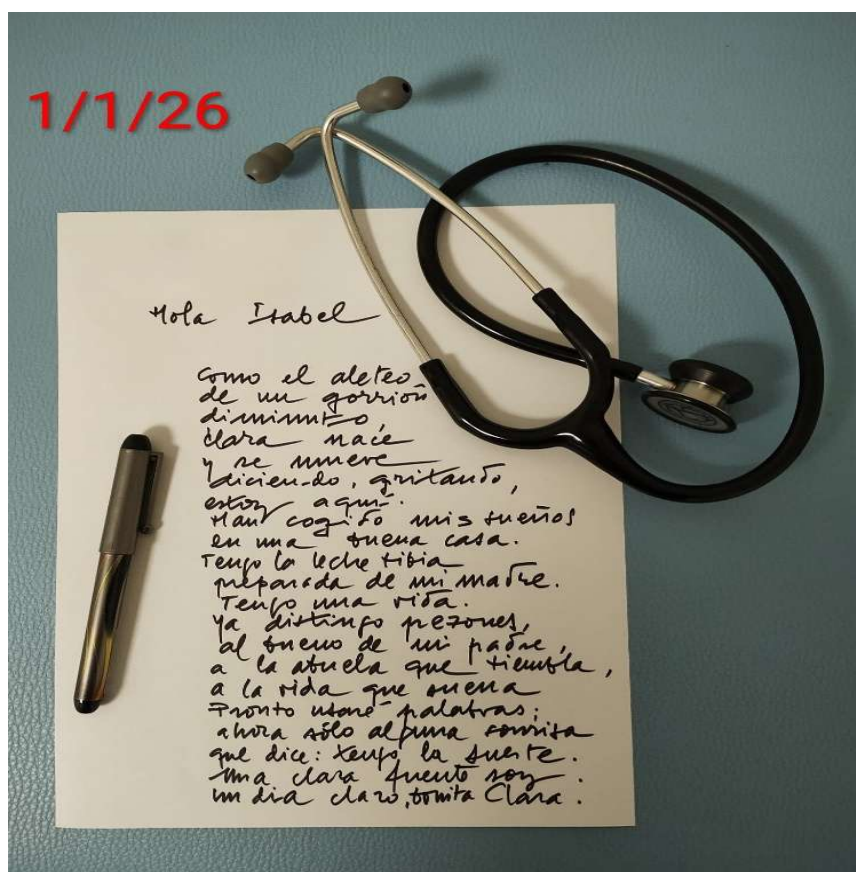 1/1/26
Hola Isabel
Como el aleteo
de un gorrión
diminuto,
Clara nace
y se mueve
diciendo, gritando,
estoy aquí.
Han cogido mis sueños
en una buena casa.
Tengo la leche tibia
preparada de mi madre.
Tengo una vida.
Ya distingo pezones,
al bueno de mi padre,
a la abuela que tiembla,
a la vida que suena
Pronto usaré palabras;
ahora sólo alguna sonrisa
que dice: tengo la suerte.
Una clara fuente soy.
un día claro, bonita Clara.